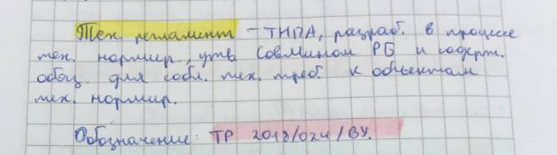 Тех регламент - ТНПА, разраб. в процессе
тех. нормир., утв СовМином РБ и содерж.
обяз. для собл. тех. треб. к объектам
тех. нормир.
Обозначение: ТР 2018/024/BY.